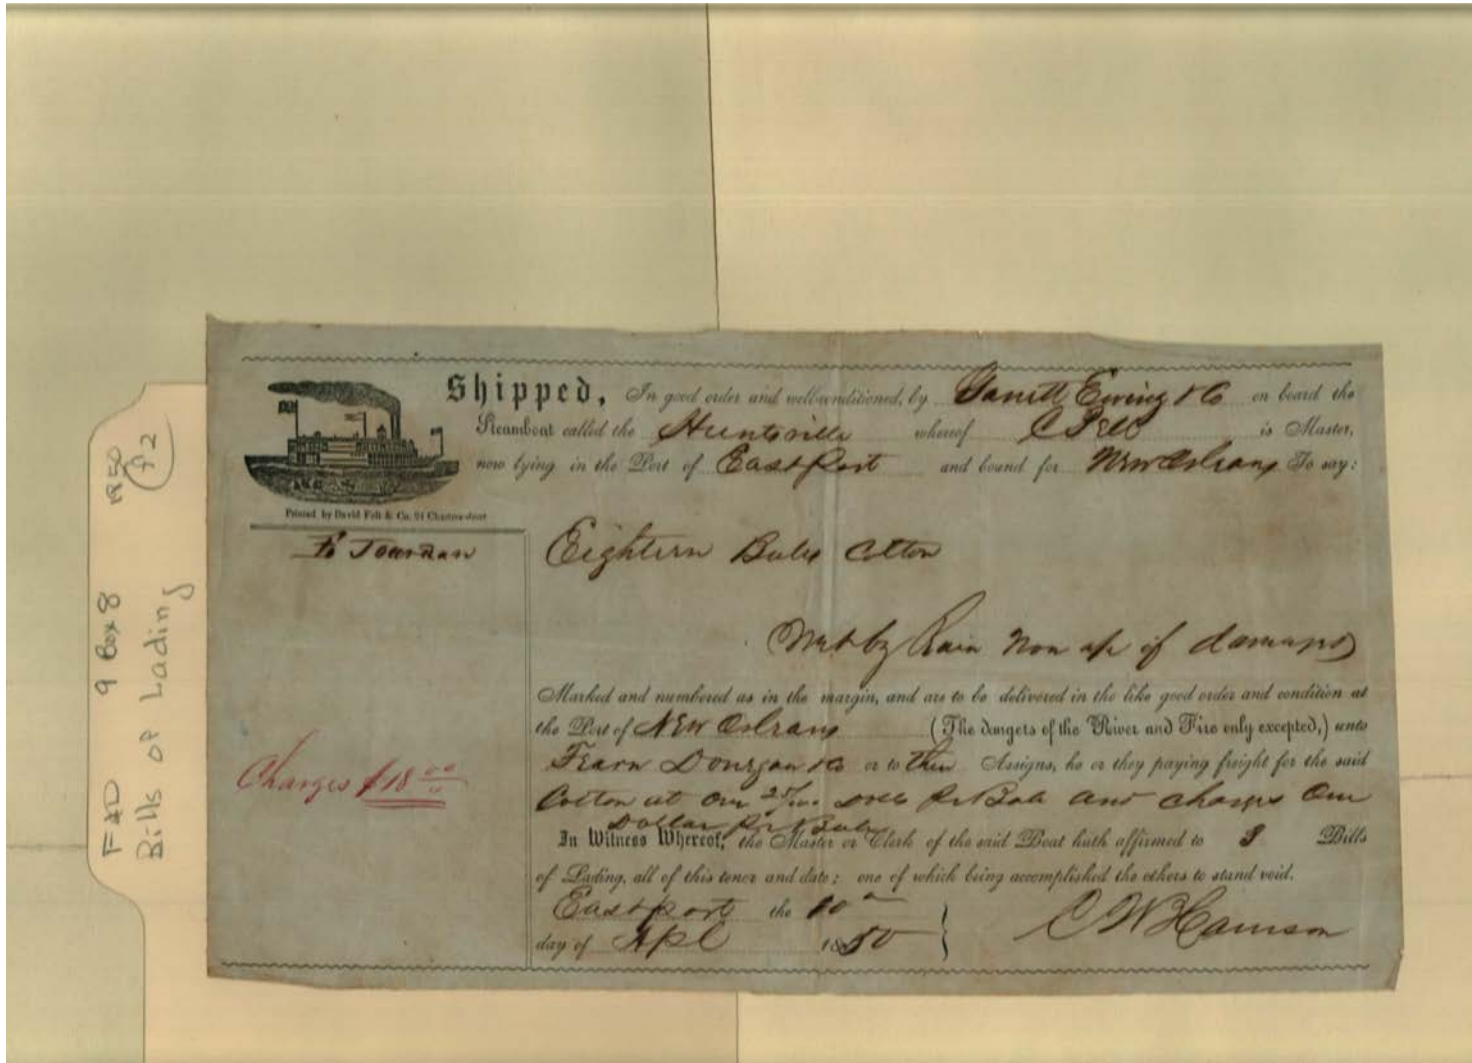 1850
P2
F&D 9 Box 8
Bills of Lading
Shipped, In good order and well-conditioned, by Garrett Ewing & Co on board the
Steamboat called the Huntsville whereof C Pell is Master,
now lying in the Port of Eastport and bound for New Orleans To say:
Printed by David Felt & Co. 24 Chartres-street
Jourdan
Eighteen Bales Cotton
Wet by Rain Non of damages
Marked and numbered as in the margin, and are to be delivered in the like good order and condition at
the Port of New Orleans (The dangers of the River and Fire only excepted,) unto
Fearn Donegan & Co or to their Assigns, he or they paying freight for the said
Cotton at One 25/100 Dolls Pr Bale and charges One
Dollar Pr Bale
Charges $18.00
In Witness Whereof, the Master or Clerk of the said Boat hath affirmed to 3 Bills
of Lading, all of this tenor and date; one of which being accomplished the others to stand void.
Eastport the 10
day of Apl 1850
C W Harrison